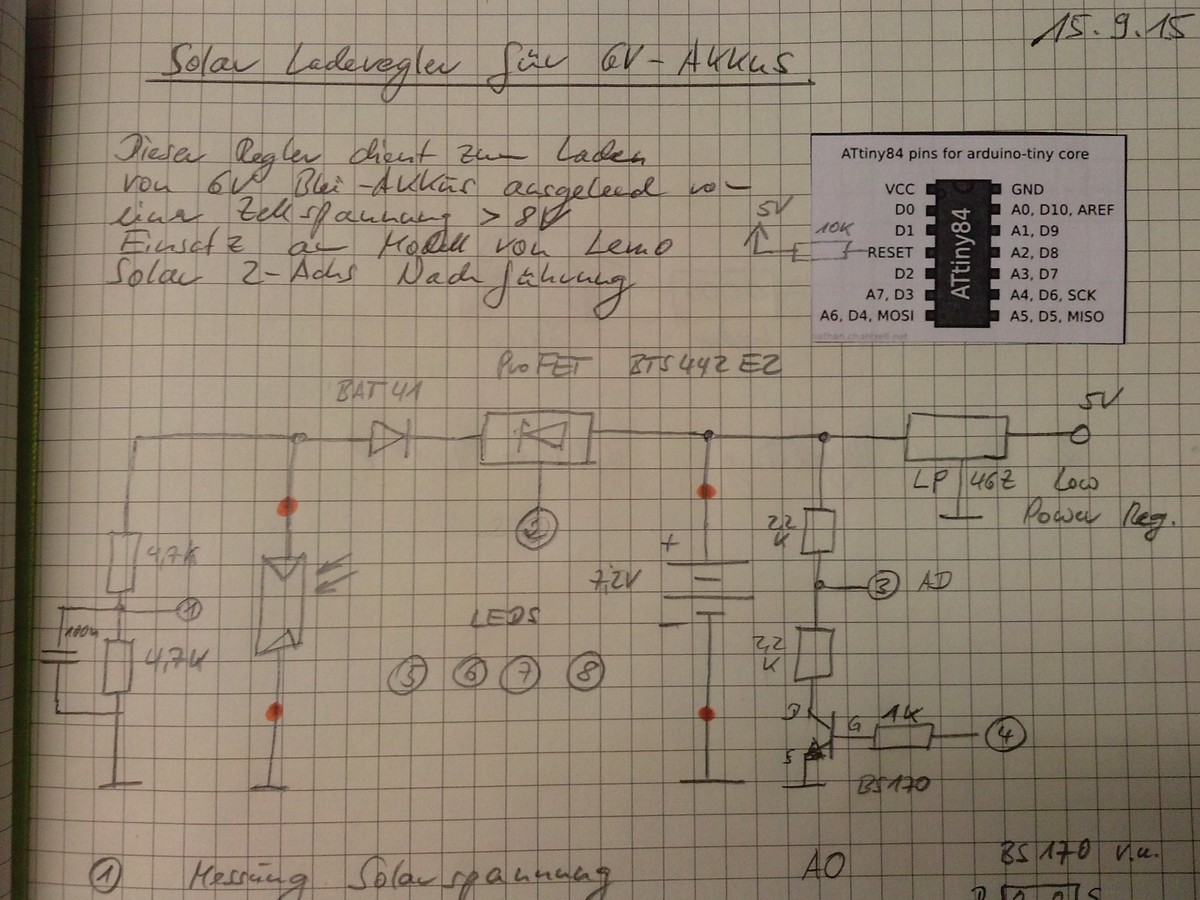 15.9.15
Solar Laderegler für 6V-Akkus
Dieser Regler dient zum Laden
von 6V Blei-Akkus ausgehend von
einer Zellspannung > 8V
Einsatz am Modell von Lemo
Solar 2-Achs Nachführung
ATtiny84 pins for arduino-tiny core
VCC GND
D0 A0, D10, AREF
D1 A1, D9
5V 10K RESET A2, D8
D2 A3, D7
A7, D3 A4, D6, SCK
A6, D4, MOSI A5, D5, MISO
ATtiny84
ProFET BTS442E2
BAT41
5V
LP 46Z Low
Power Reg.
2
2,2
K
4,7K
+
7,2V
3 AD
1
LEDS
100n
4,7K
5 6 7 8
−
2,2
K
D
G 1K 4
S
BS170
1 Messung Solarspannung A0
BS170 v.u.
D S